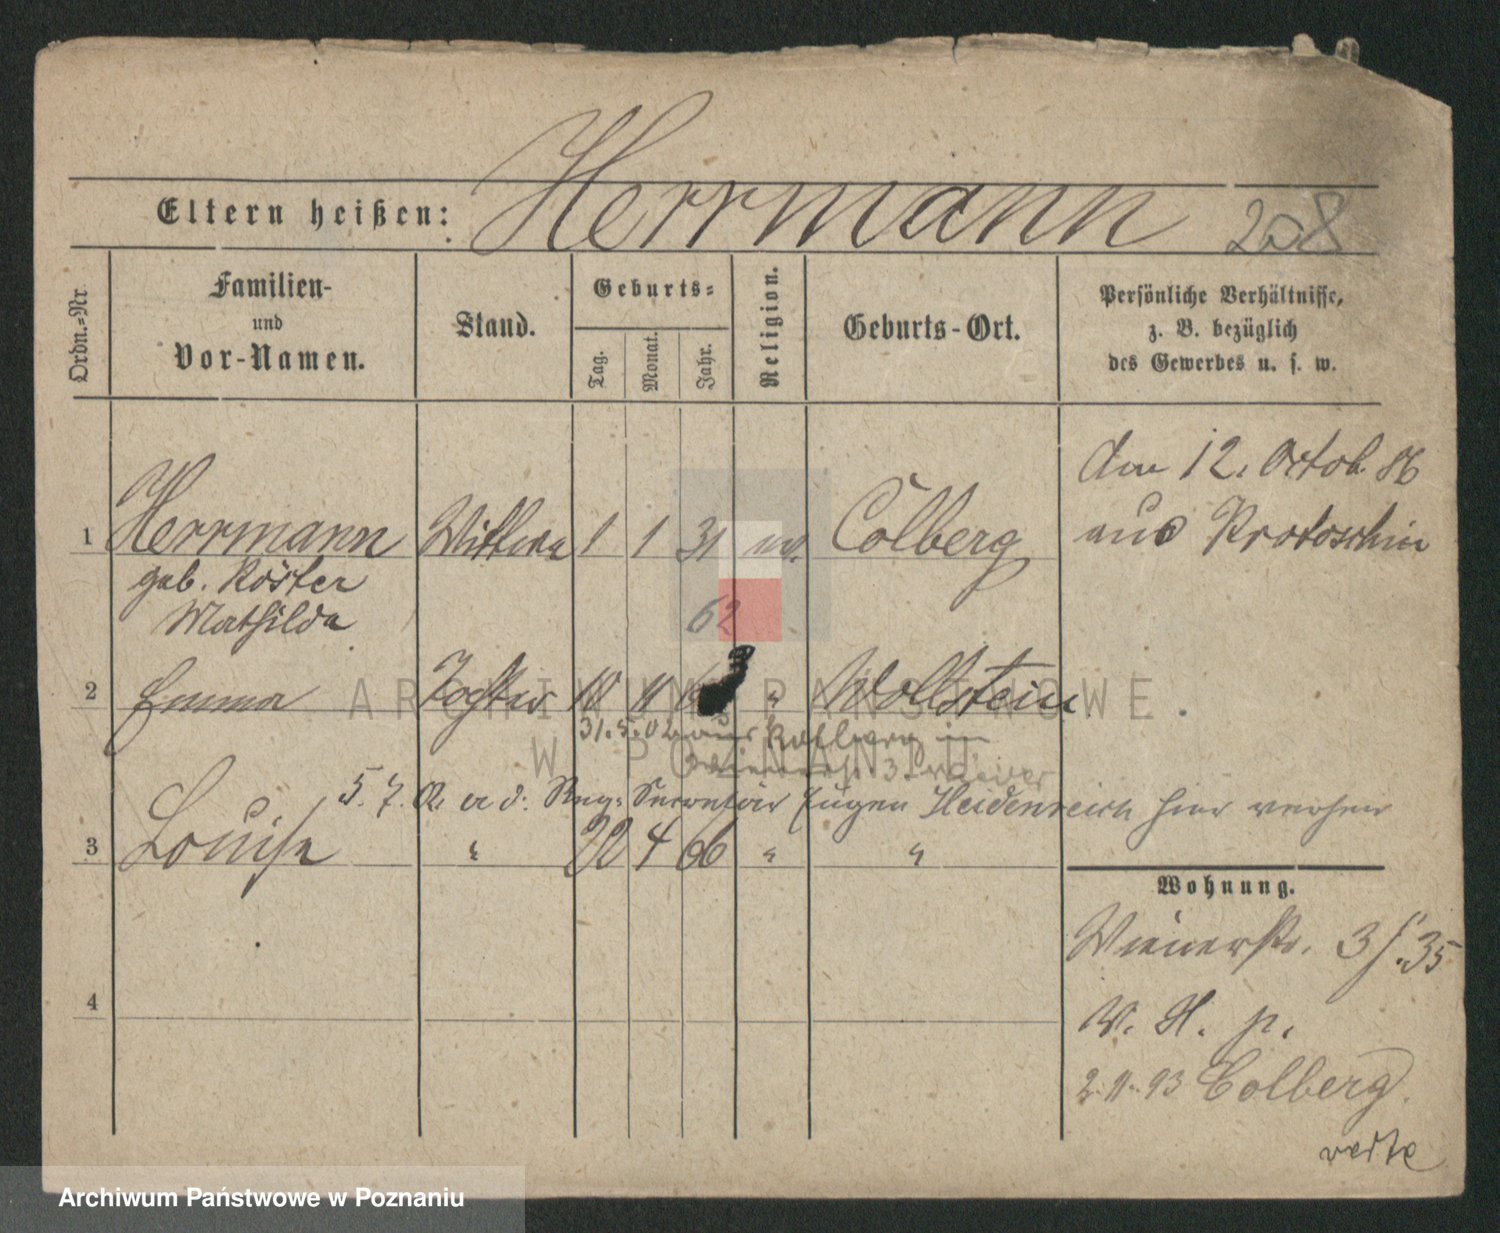 Eltern heißen: Herrmann 208
Ordn.=Nr.
Familien-
und
Vor-Namen.
Stand.
Geburts=
Tag.
Monat.
Jahr.
Religion.
Geburts-Ort.
Persönliche Verhältnisse,
z. B. bezüglich
des Gewerbes u. s. w.
den 12. Octob. 86
aus Krotoschin
1 Herrmann Wittwe 1 1 31 ev. Colberg
geb. Köster
Mathilde
62
2 Emma Tochter 10 11 " Wollstein
31.5.02 aus Kolberg in
5.7. a. d. Reg: Secretär Eugen Heidenreich hier
3 Louise " 20 4 66 " "
Wohnung.
Wienerstr. 3 35
W. H. p.
2.11.93 Colberg.
verte
4
ARCHIWUM PAŃSTWOWE
W POZNANIU
Archiwum Państwowe w Poznaniu